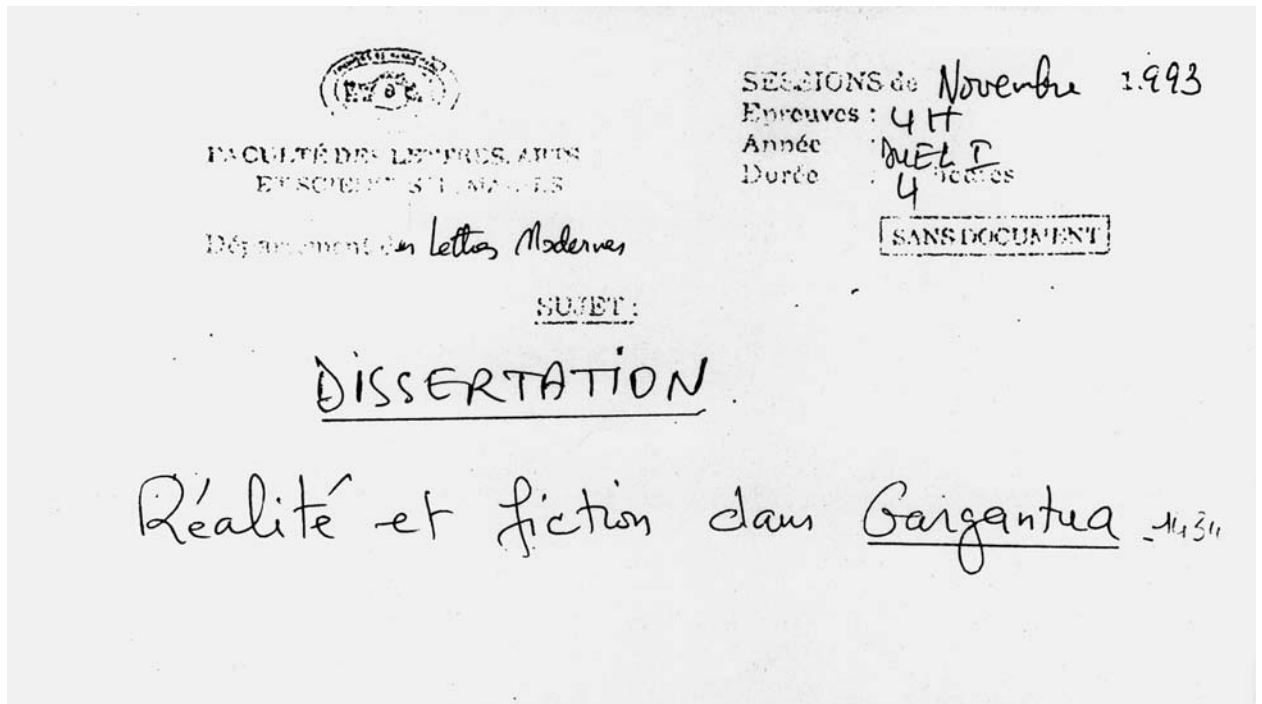 FACULTÉ DES LETTRES, ARTS
Département des Lettres Modernes
SESSIONS de Novembre 1.993
Epreuves : 4H
Année : DUEL I
Durée : 4 heures
SANS DOCUMENT
SUJET :
DISSERTATION
Réalité et fiction dans Gargantua